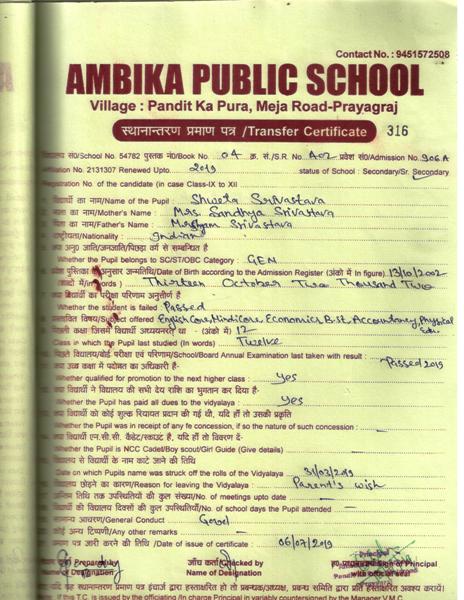 Contact No. : 9451572508
AMBIKA PUBLIC SCHOOL
Village : Pandit Ka Pura, Meja Road-Prayagraj
स्थानान्तरण प्रमाण पत्र /Transfer Certificate 316
सं0/School No. 54782 पुस्तक नं0/Book No. 04 क्र. सं./S.R. No. A02 प्रवेश सं0/Admission No. 906A
No. 2131307 Renewed Upto. 2019 status of School : Secondary/Sr. Secondary
Registration No. of the candidate (in case Class-IX to XII
विद्यार्थी का नाम/Name of the Pupil : Shweta Srivastava
का नाम/Mother's Name : Mrs. Sandhya Srivastava
का नाम/Father's Name : Srivastava
/Nationality : Indian
क्या अनु0 जाति/जनजाति/पिछड़ा वर्ग से सम्बन्धित है
Whether the Pupil belongs to SC/ST/OBC Category : GEN
प्रवेश पुस्तिका अनुसार जन्मतिथि/Date of Birth according to the Admission Register (अंको में In figure) 13/10/2002
(शब्दों में/in words) Thirteen October Two Thousand Two
क्या विद्यार्थी का परीक्षा परिणाम अनुत्तीर्ण है
Whether the student is failed Passed
विषय/Subject offered English Core, Hindi Core, Economics, B.st, Accountancy, Physical Edu.
कक्षा जिसमें विद्यार्थी अध्ययनरत था - (अंको में) 12
Class in which the Pupil last studied (In words) Twelve
पिछले विद्यालय/बोर्ड परीक्षा एवं परिणाम/School/Board Annual Examination last taken with result : Passed 2019
क्या उच्च कक्षा में पदोन्नत का अधिकारी है-
Whether qualified for promotion to the next higher class : Yes
क्या विद्यार्थी ने विद्यालय की सभी देय राशि का भुगतान कर दिया है-
Whether the Pupil has paid all dues to the vidyalaya : Yes
क्या विद्यार्थी को कोई शुल्क रियायत प्रदान की गई थी, यदि हाँ तो उसकी प्रकृति
Whether the Pupil was in receipt of any fe concession, if so the nature of such concession : —
क्या विद्यार्थी एन.सी.सी. कैडेट/स्काउट है, यदि हाँ तो विवरण दें-
Whether the Pupil is NCC Cadet/Boy scout/Girl Guide (Give details) —
विद्यालय से विद्यार्थी के नाम काटे जाने की तिथि
Date on which Pupils name was struck off the rolls of the Vidyalaya 31/03/2019
विद्यालय छोड़ने का कारण/Reason for leaving the Vidyalaya : Parent's wish
अन्तिम तिथि तक उपस्थितियों की कुल संख्या/No. of meetings upto date —
विद्यार्थी की विद्यालय दिवसों की कुल उपस्थितियाँ/No. of school days the Pupil attended —
सामान्य आचरण/General Conduct Good
कोई अन्य टिप्पणी/Any other remarks —
प्रमाण पत्र जारी करने की तिथि /Date of issue of certificate : 06/07/2019
Prepared by जाँच कर्ता/Checked by Sign of Principal
Name of Designation Name of Designation with official seal
यदि यह स्थानान्तरण प्रमाण पत्र इंचार्ज द्वारा हस्ताक्षरित हो तो प्रबन्धक/अध्यक्ष, प्रबन्ध समिति द्वारा प्रति हस्ताक्षरित अवश्य करायें।
If this T.C. is issued by the officiating /In charge Principal in variably countersigned by the Manager V.M.C.